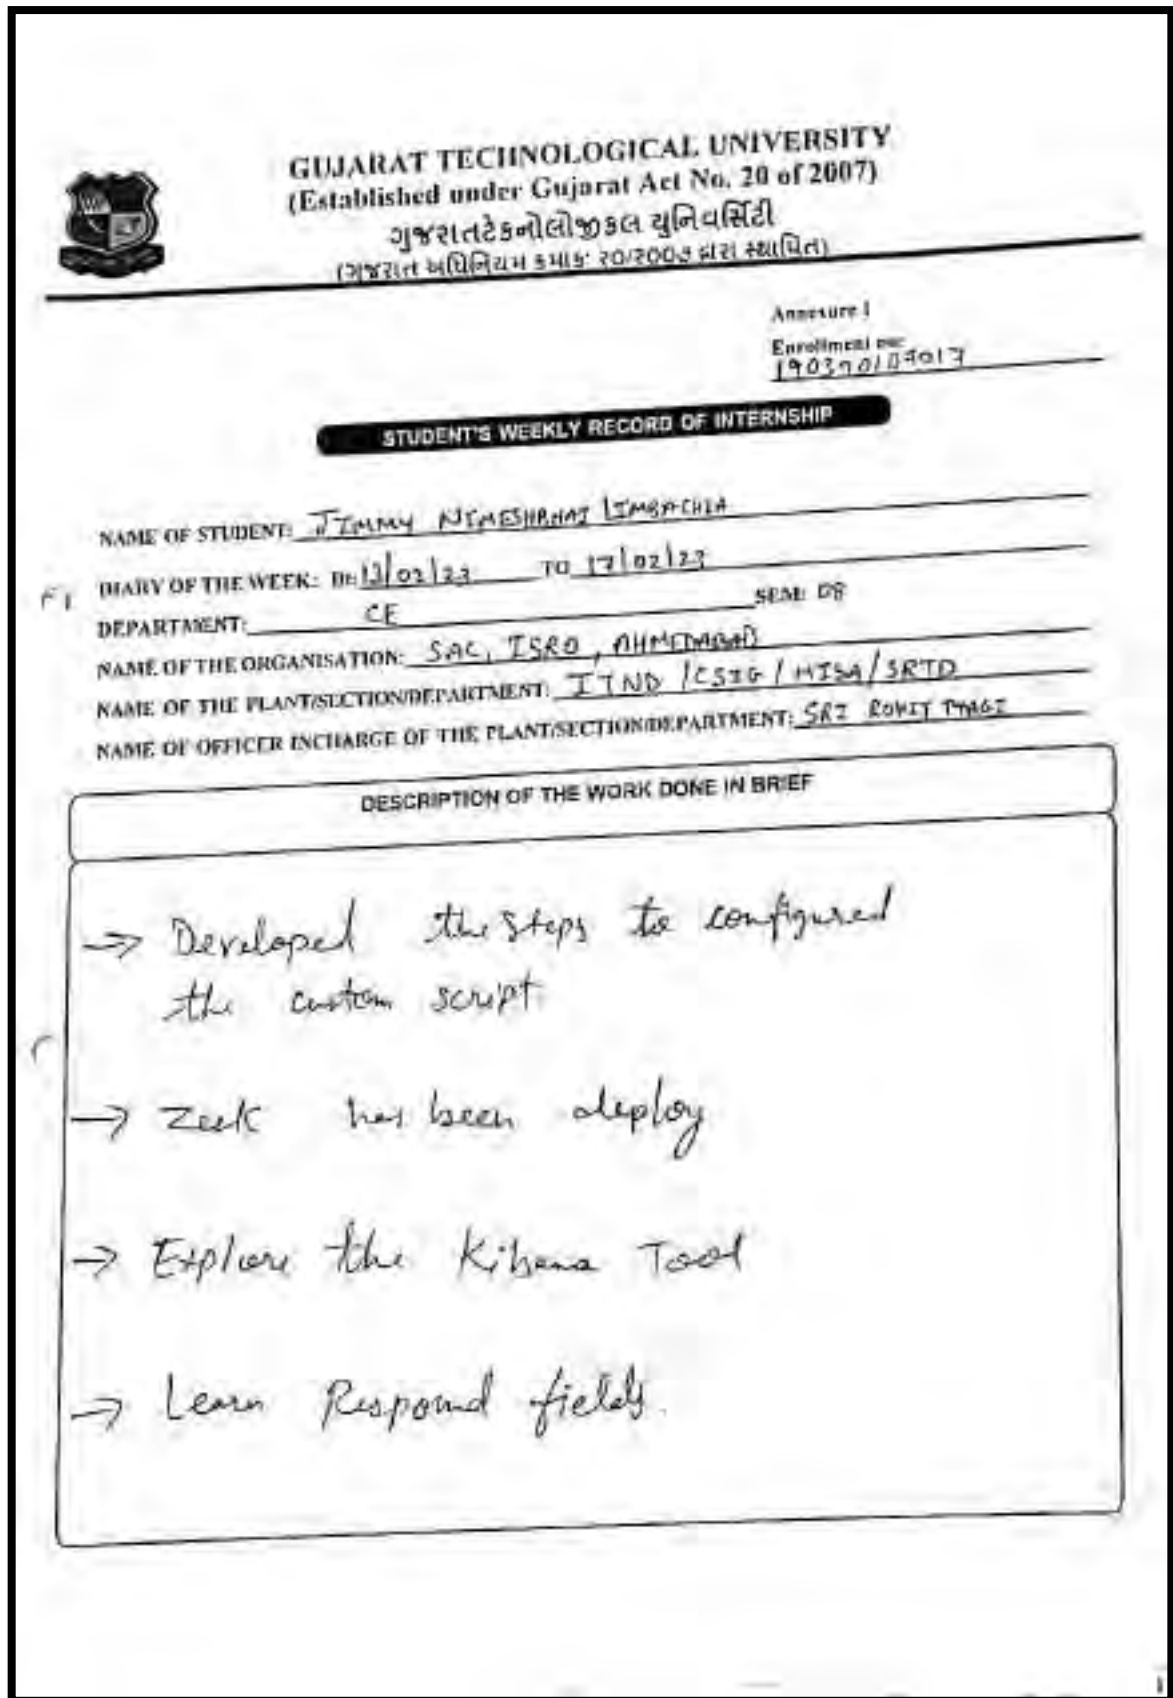 GUJARAT TECHNOLOGICAL UNIVERSITY
(Established under Gujarat Act No. 20 of 2007)
ગુજરાતટેકનોલોજીકલ યુનિવર્સિટી
(ગુજરાત અધિનિયમ ક્રમાંક: ૨૦/૨૦૦૭ દ્વારા સ્થાપિત)
Annexure 1
Enrollment no:
STUDENT'S WEEKLY RECORD OF INTERNSHIP
NAME OF STUDENT: JIMMY NIMESHBHAI LIMBACHIA
DIARY OF THE WEEK: 13/02/23 TO 17/02/23
DEPARTMENT: CE SEM: 08
NAME OF THE ORGANISATION: SAC, ISRO, AHMEDABAD
NAME OF THE PLANT/SECTION/DEPARTMENT: ITND /CSIG / MISA/ SRTD
NAME OF OFFICER INCHARGE OF THE PLANT/SECTION/DEPARTMENT: SRI ROHIT TYAGI
DESCRIPTION OF THE WORK DONE IN BRIEF
→ Developed the steps to configured
the custom script.
→ Zeek has been deploy
→ Explore the Kibana Tool
→ Learn Respond fields.